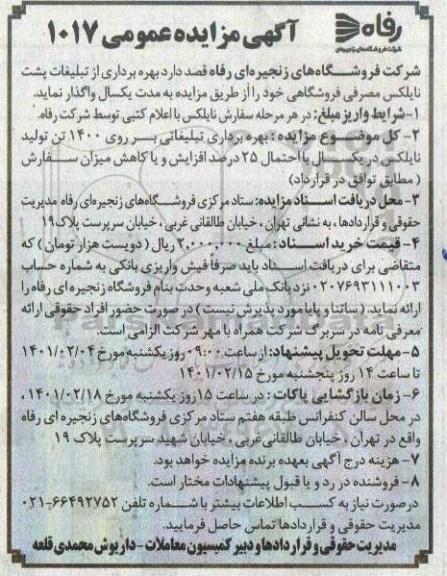 رفاه
شرکت فروشگاه‌های زنجیره‌ای
آگهی مزایده عمومی ۱۰۱۷
شرکت فروشگاه‌های زنجیره‌ای رفاه قصد دارد بهره برداری از تبلیغات پشت
نایلکس مصرفی فروشگاهی خود را از طریق مزایده به مدت یکسال واگذار نماید.
۱-شرایط واریز مبلغ: در هر مرحله سفارش نایلکس با اعلام کتبی توسط شرکت رفاه.
۲- کل موضوع مزایده: بهره برداری تبلیغاتی بر روی ۱۴۰۰ تن تولید
نایلکس در یکسال با احتمال ۲۵ درصد افزایش و یا کاهش میزان سفارش
( مطابق توافق در قرارداد)
۳- محل دریافت اسناد مزایده: ستاد مرکزی فروشگاه‌های زنجیره‌ای رفاه مدیریت
حقوقی و قراردادها، به نشانی تهران ، خیابان طالقانی غربی ، خیابان سرپرست پلاک ۱۹
۴- قیمت خرید اسناد: مبلغ ۲,۰۰۰,۰۰۰ ریال ( دویست هزار تومان ) که
متقاضی برای دریافت اسناد باید صرفاً فیش واریزی بانکی به شماره حساب
۰۲۰۷۶۹۳۱۱۱۰۰۳ نزد بانک ملی شعبه وحدت بنام فروشگاه زنجیره ای رفاه را
ارائه نماید. ( ساتنا و پایا مورد پذیرش نیست ) در صورت حضور افراد حقوقی ارائه
معرفی نامه در سربرگ شرکت همراه با مهر شرکت الزامی است.
۵- مهلت تحویل پیشنهاد: از ساعت ۰۹:۰۰ روز یکشنبه مورخ ۱۴۰۱/۰۲/۰۴
تا ساعت ۱۴ روز پنجشنبه مورخ ۱۴۰۱/۰۲/۱۵
۶- زمان بازگشایی پاکات : در ساعت ۱۵ روز یکشنبه مورخ ۱۴۰۱/۰۲/۱۸ ،
در محل سالن کنفرانس طبقه هفتم ستاد مرکزی فروشگاه‌های زنجیره ای رفاه
واقع در تهران ، خیابان طالقانی غربی ، خیابان شهید سرپرست پلاک ۱۹
۷- هزینه درج آگهی بعهده برنده مزایده خواهد بود.
۸- فروشنده در رد و یا قبول پیشنهادات مختار است.
درصورت نیاز به کسب اطلاعات بیشتر با شماره تلفن ۶۶۴۹۲۷۵۲-۰۲۱
مدیریت حقوقی و قراردادها تماس حاصل فرمایید.
مدیریت حقوقی و قراردادها و دبیر کمیسیون معاملات - داریوش محمدی قلعه